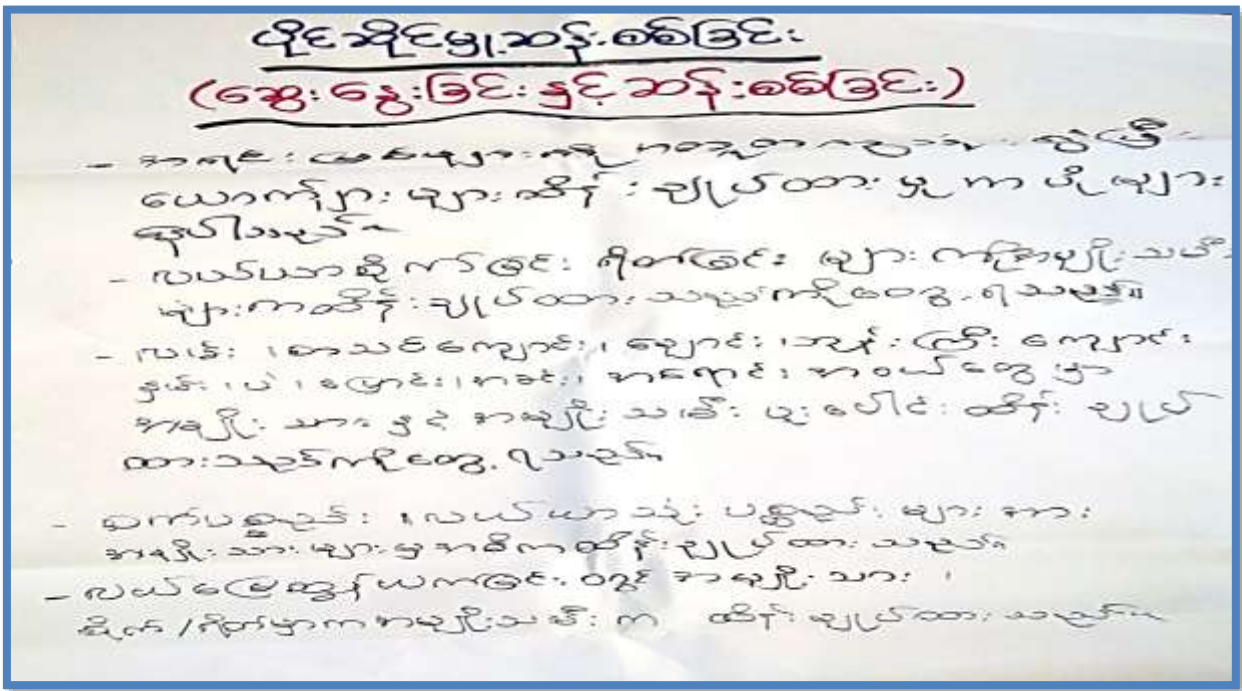 ပိုင်ဆိုင်မှုဆန်းစစ်ခြင်း
(ဆွေးနွေးခြင်းနှင့်ဆန်းစစ်ခြင်း)
- အရင်းအမြစ်များကို
ယောက်ျားများထိန်းချုပ်ထားမှုကပိုများ
နေပါသည်။
- လယ်ယာစိုက်ခြင်းရိတ်ခြင်းများကိုအမျိုးသမီး
များကထိန်းချုပ်ထားသည်ကိုတွေ့ရသည်။
- လမ်း၊စာသင်ကျောင်း၊ချောင်း၊ဘုန်းကြီးကျောင်း
နှမ်း၊ပဲ၊ပြောင်း၊အရောင်းအဝယ်တွေမှာ
အမျိုးသားနှင့်အမျိုးသမီးပူးပေါင်းထိန်းချုပ်
ထားသည်ကိုတွေ့ရသည်။
- စက်ပစ္စည်း၊လယ်ယာသုံးပစ္စည်းများအား
အမျိုးသားများမှအဓိကထိန်းချုပ်ထားသည်။
- လယ်မြေထွန်ယက်ခြင်းတွင်အမျိုးသား၊
စိုက်/ရိတ်မှာကအမျိုးသမီးကထိန်းချုပ်ထားသည်။